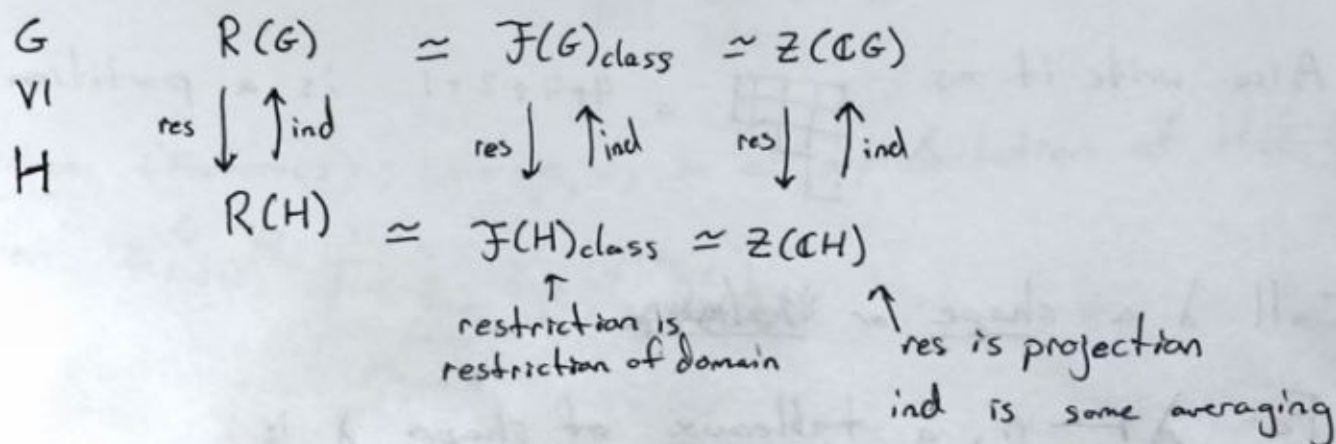 G R(G) ≃ F(G)class ≃ Z(ℂG)
VI res ↓ ↑ ind res ↓ ↑ ind res ↓ ↑ ind
H R(H) ≃ F(H)class ≃ Z(ℂH)
↑ ↖
restriction is
restriction of domain
res is projection
ind is some averaging